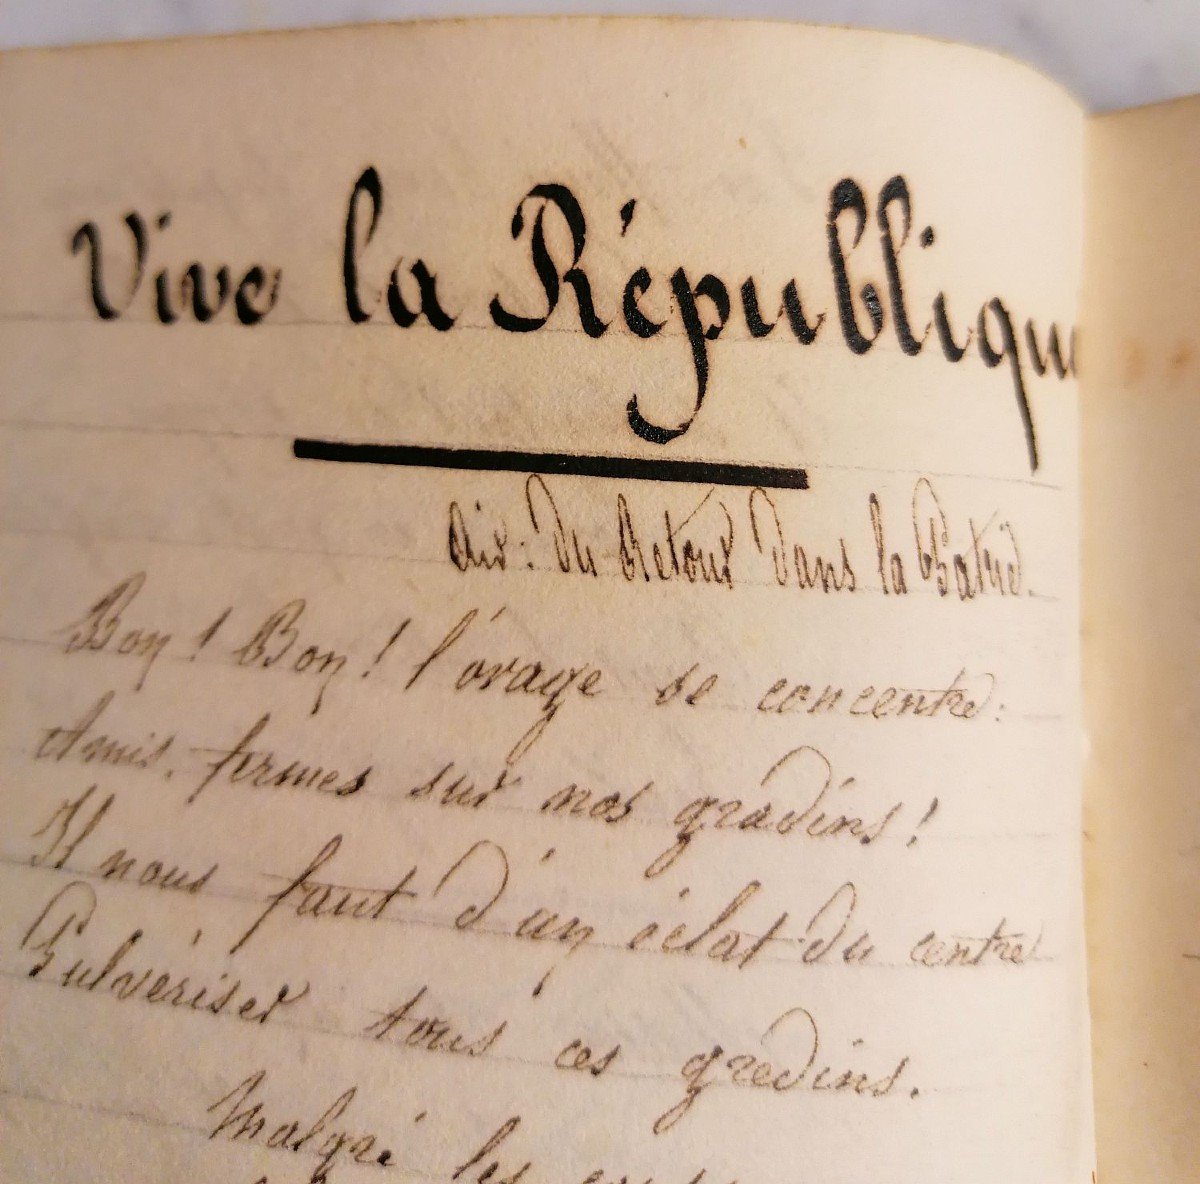 Vive la République
Air: Du Retour Dans la Patrie.
Bon! Bon! l'orage se concentre:
Amis, fermes sur nos gradins!
Il nous faut d'un éclat du centre
Pulvériser tous ces gredins.
Malgré les